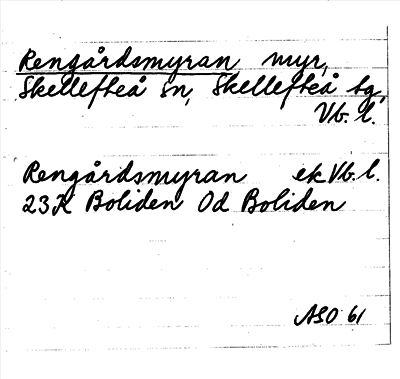 Rengårdsmyran myr,
Skellefteå sn, Skellefteå tg,
Vb. l.
Rengårdsmyran ek Vb. l.
23K Boliden 0d Boliden
ASO 61